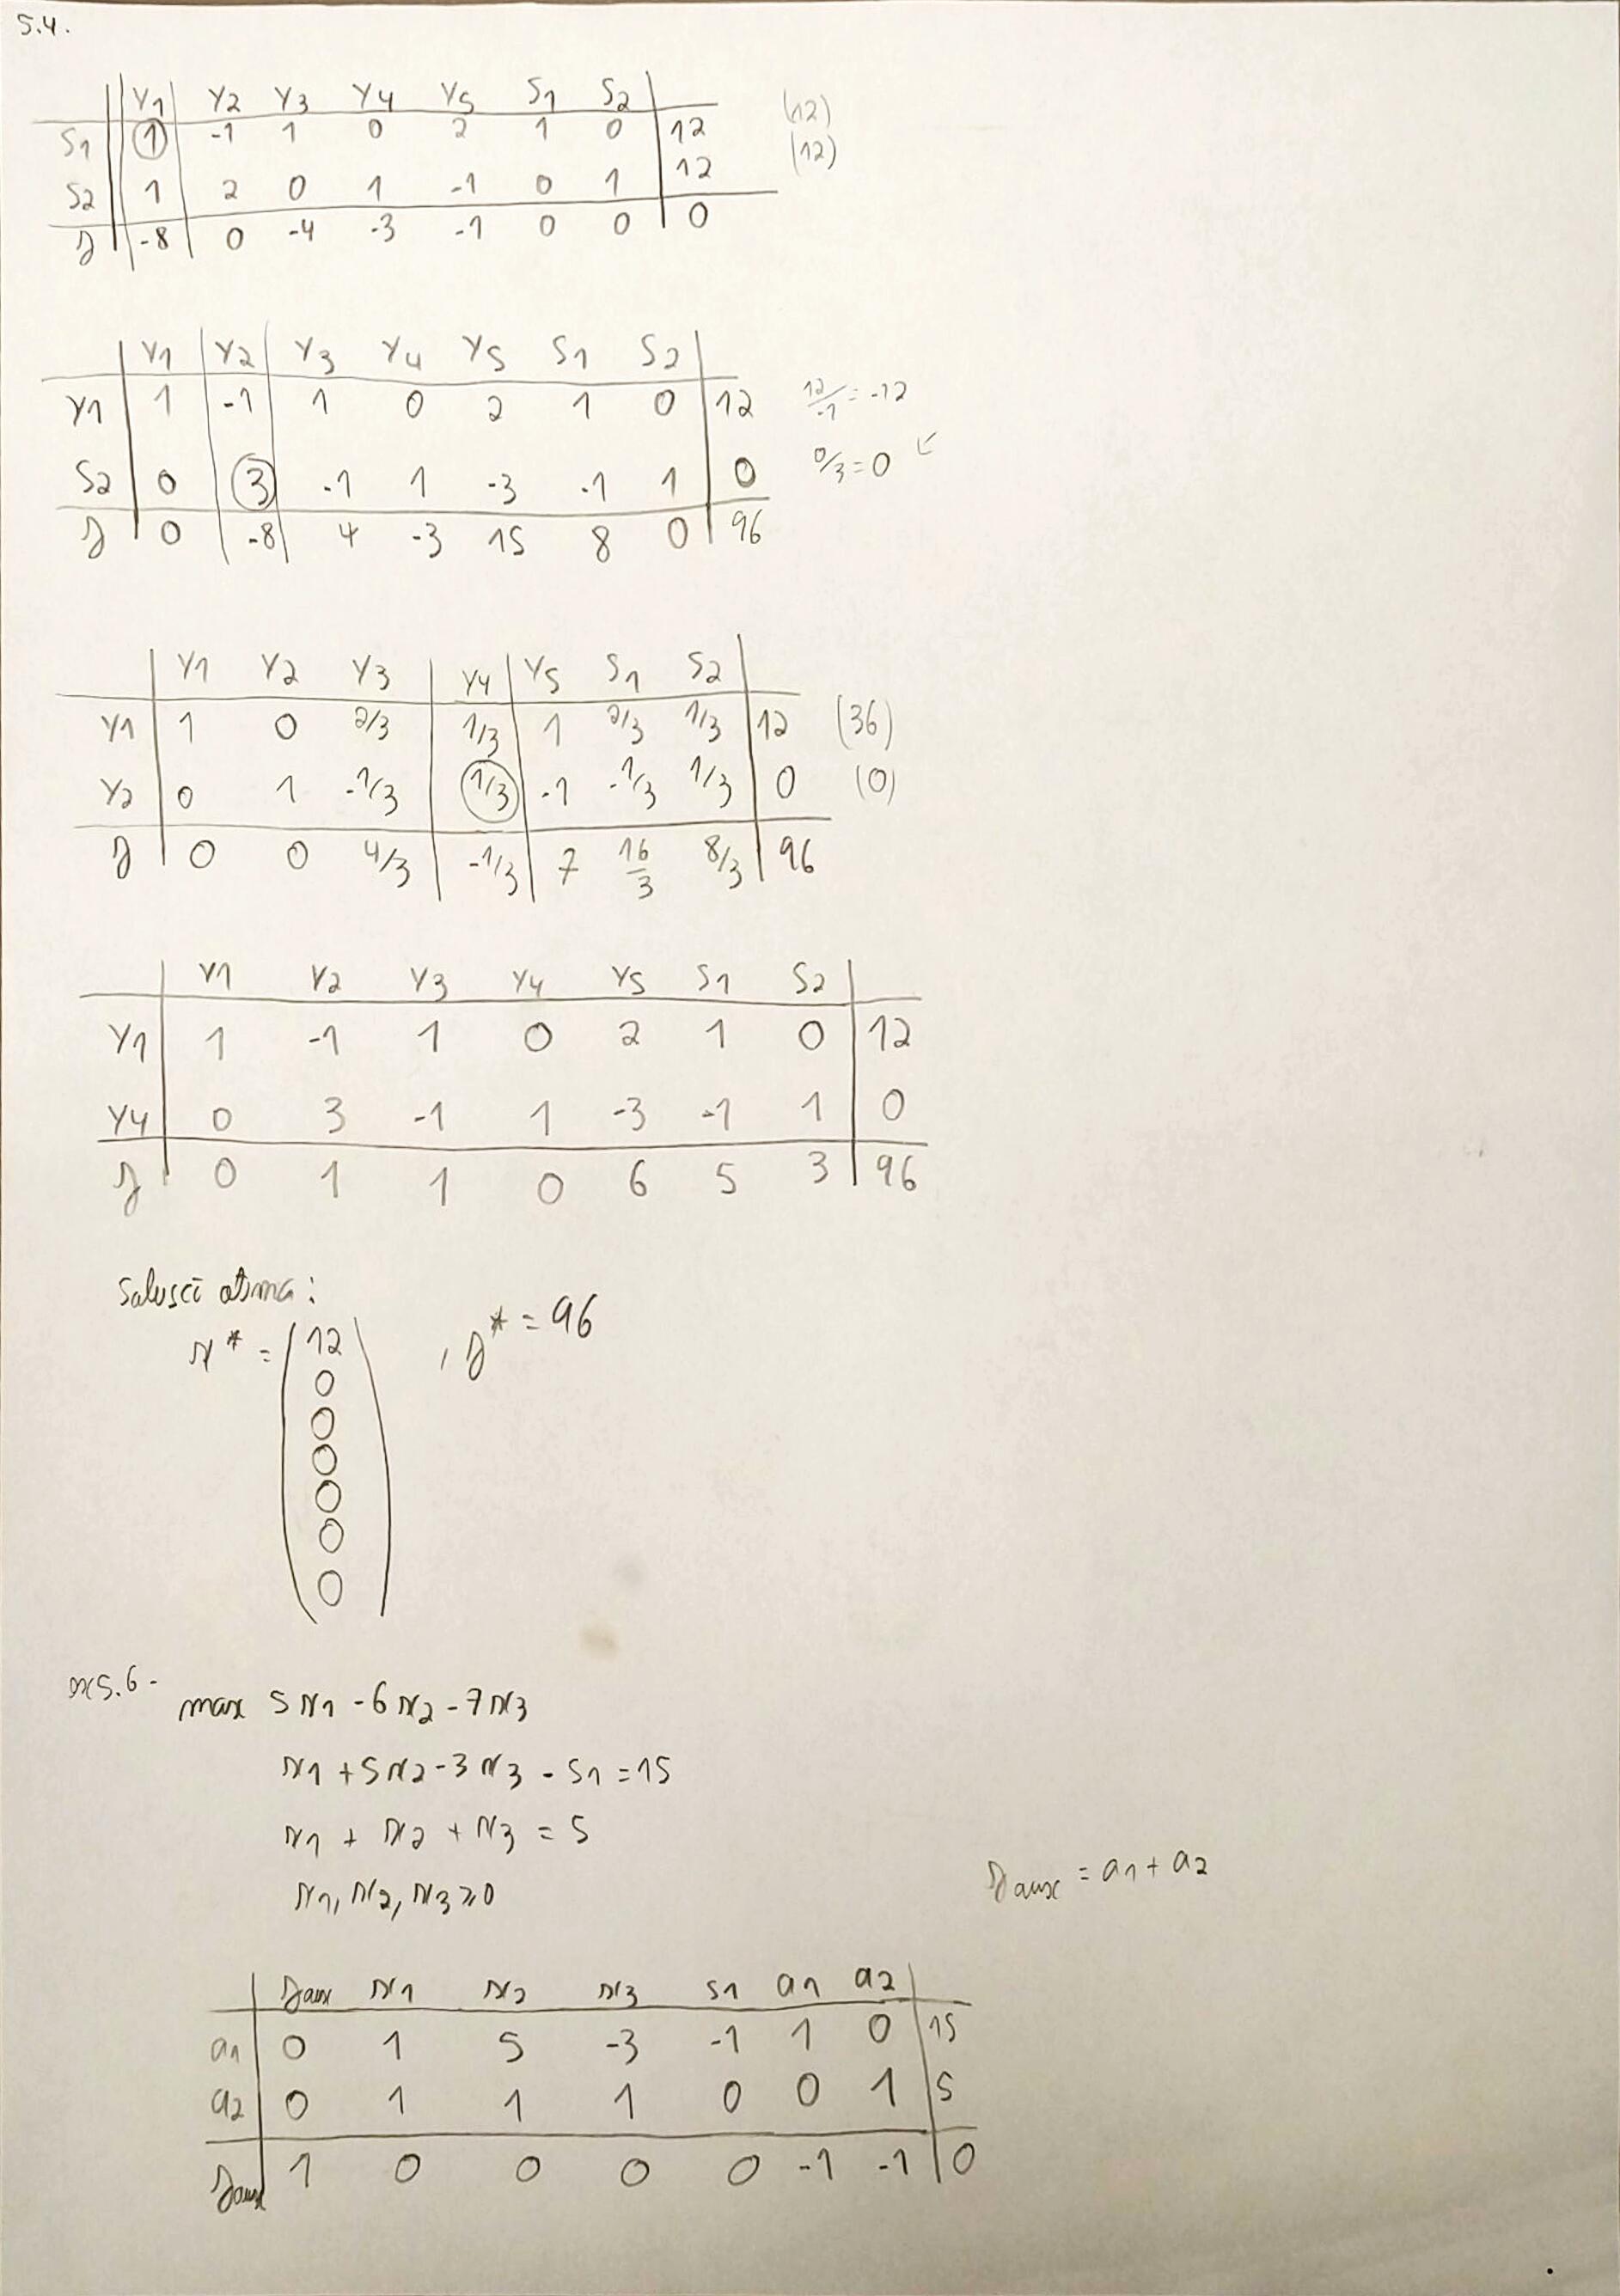 5.4.
Y1 Y2 Y3 Y4 Y5 S1 S2
S1 1 -1 1 0 2 1 0 12 (12)
S2 1 2 0 1 -1 0 1 12 (12)
z -8 0 -4 -3 -1 0 0 0
Y1 Y2 Y3 Y4 Y5 S1 S2
Y1 1 -1 1 0 2 1 0 12 12/-1 = -12
S2 0 3 -1 1 -3 -1 1 0 0/3 = 0 ←
z 0 -8 4 -3 15 8 0 96
Y1 Y2 Y3 Y4 Y5 S1 S2
Y1 1 0 2/3 1/3 1 2/3 1/3 12 (36)
Y2 0 1 -1/3 1/3 -1 -1/3 1/3 0 (0)
z 0 0 4/3 -1/3 7 16/3 8/3 96
Y1 Y2 Y3 Y4 Y5 S1 S2
Y1 1 -1 1 0 2 1 0 12
Y4 0 3 -1 1 -3 -1 1 0
z 0 1 1 0 6 5 3 96
x* = (12 , z* = 96
0
0
0
0
0
0)
5.6-
max 5x1 - 6x2 - 7x3
x1 + 5x2 - 3x3 - s1 = 15
x1 + x2 + x3 = 5
x1, x2, x3 ≥ 0
zaux = a1 + a2
zaux x1 x2 x3 s1 a1 a2
a1 0 1 5 -3 -1 1 0 15
a2 0 1 1 1 0 0 1 5
zaux 1 0 0 0 0 -1 -1 0